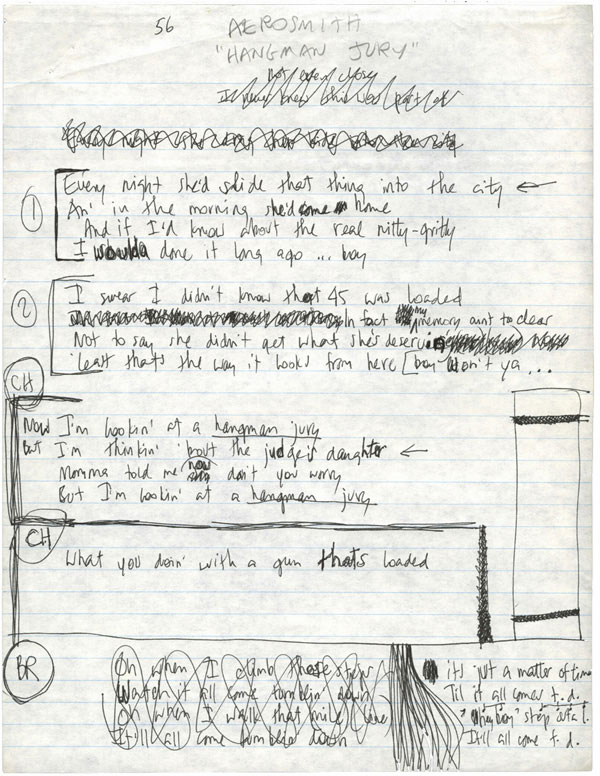 56 AEROSMITH
"HANGMAN JURY"
not even close
I never knew
①
Every night she'd slide that thing into the city ←
An' in the morning she'd come home
And if I'd know about the real nitty-gritty
I woulda done it long ago ... boy
②
I swear I didn't know that 45 was loaded
In fact my memory aint to clear
Not to say she didn't get what she's deservin
'Least thats the way it looks from here [boy Won't ya ...
CH
Now I'm lookin' at a hangman jury
But I'm thinkin' 'bout the judge's daughter ←
Momma told me now don't you worry
But I'm lookin' at a hangman jury
CH
What you doin' with a gun thats loaded
BR
Oh when I climb those
Watch it all come tumblin' down
Oh when I walk that mile
It'll all come tumblin down
it's just a matter of time
Til it all comes t. d.
step
It'll all come t. d.